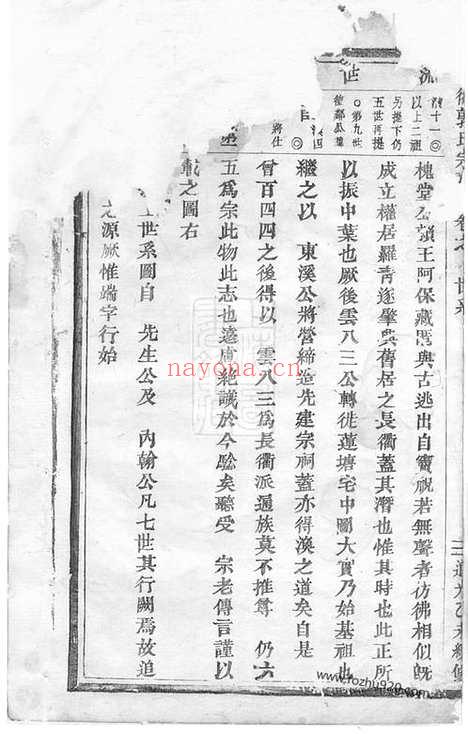 郭氏宗 卷之 世系 三 道光乙未續修
流
十一◎
以上二
另提下仍
五世再提
世
○第九世
將仕
槐堂公 王阿保藏匿與古逃出自竇視若無聲者彷彿相似旣
成立權居羅青遂肇與舊居之長衢蓋其潛也惟其時也此正所
以振中葉也厥後雲八三公轉徙蓮塘宅中圖大實乃始基祖也
繼之以 東溪公將營締造先建宗祠蓋亦得渙之道矣自是
曾百四四之後得以 雲八三爲長衢派通族莫不推尊 仍六
五爲宗此物此志也遠慮絕識於今驗矣聽受 宗老傳言謹以
載之圖右
世系圖自 先生公及 內翰公凡七世其行闕焉故追
之源厥惟端字行始
nayona.cn
www.fozhu920.com